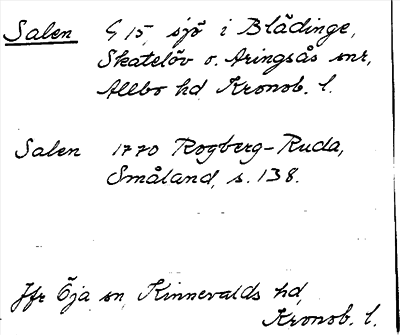 Salen G 15, sjö i Blädinge,
Skatelöv o. Aringsås snr,
Allbo hd Kronob. l.
Salen 1770 Rogberg-Ruda,
Småland, s. 138.
Jfr Öja sn, Kinnevalds hd,
Kronob. l.